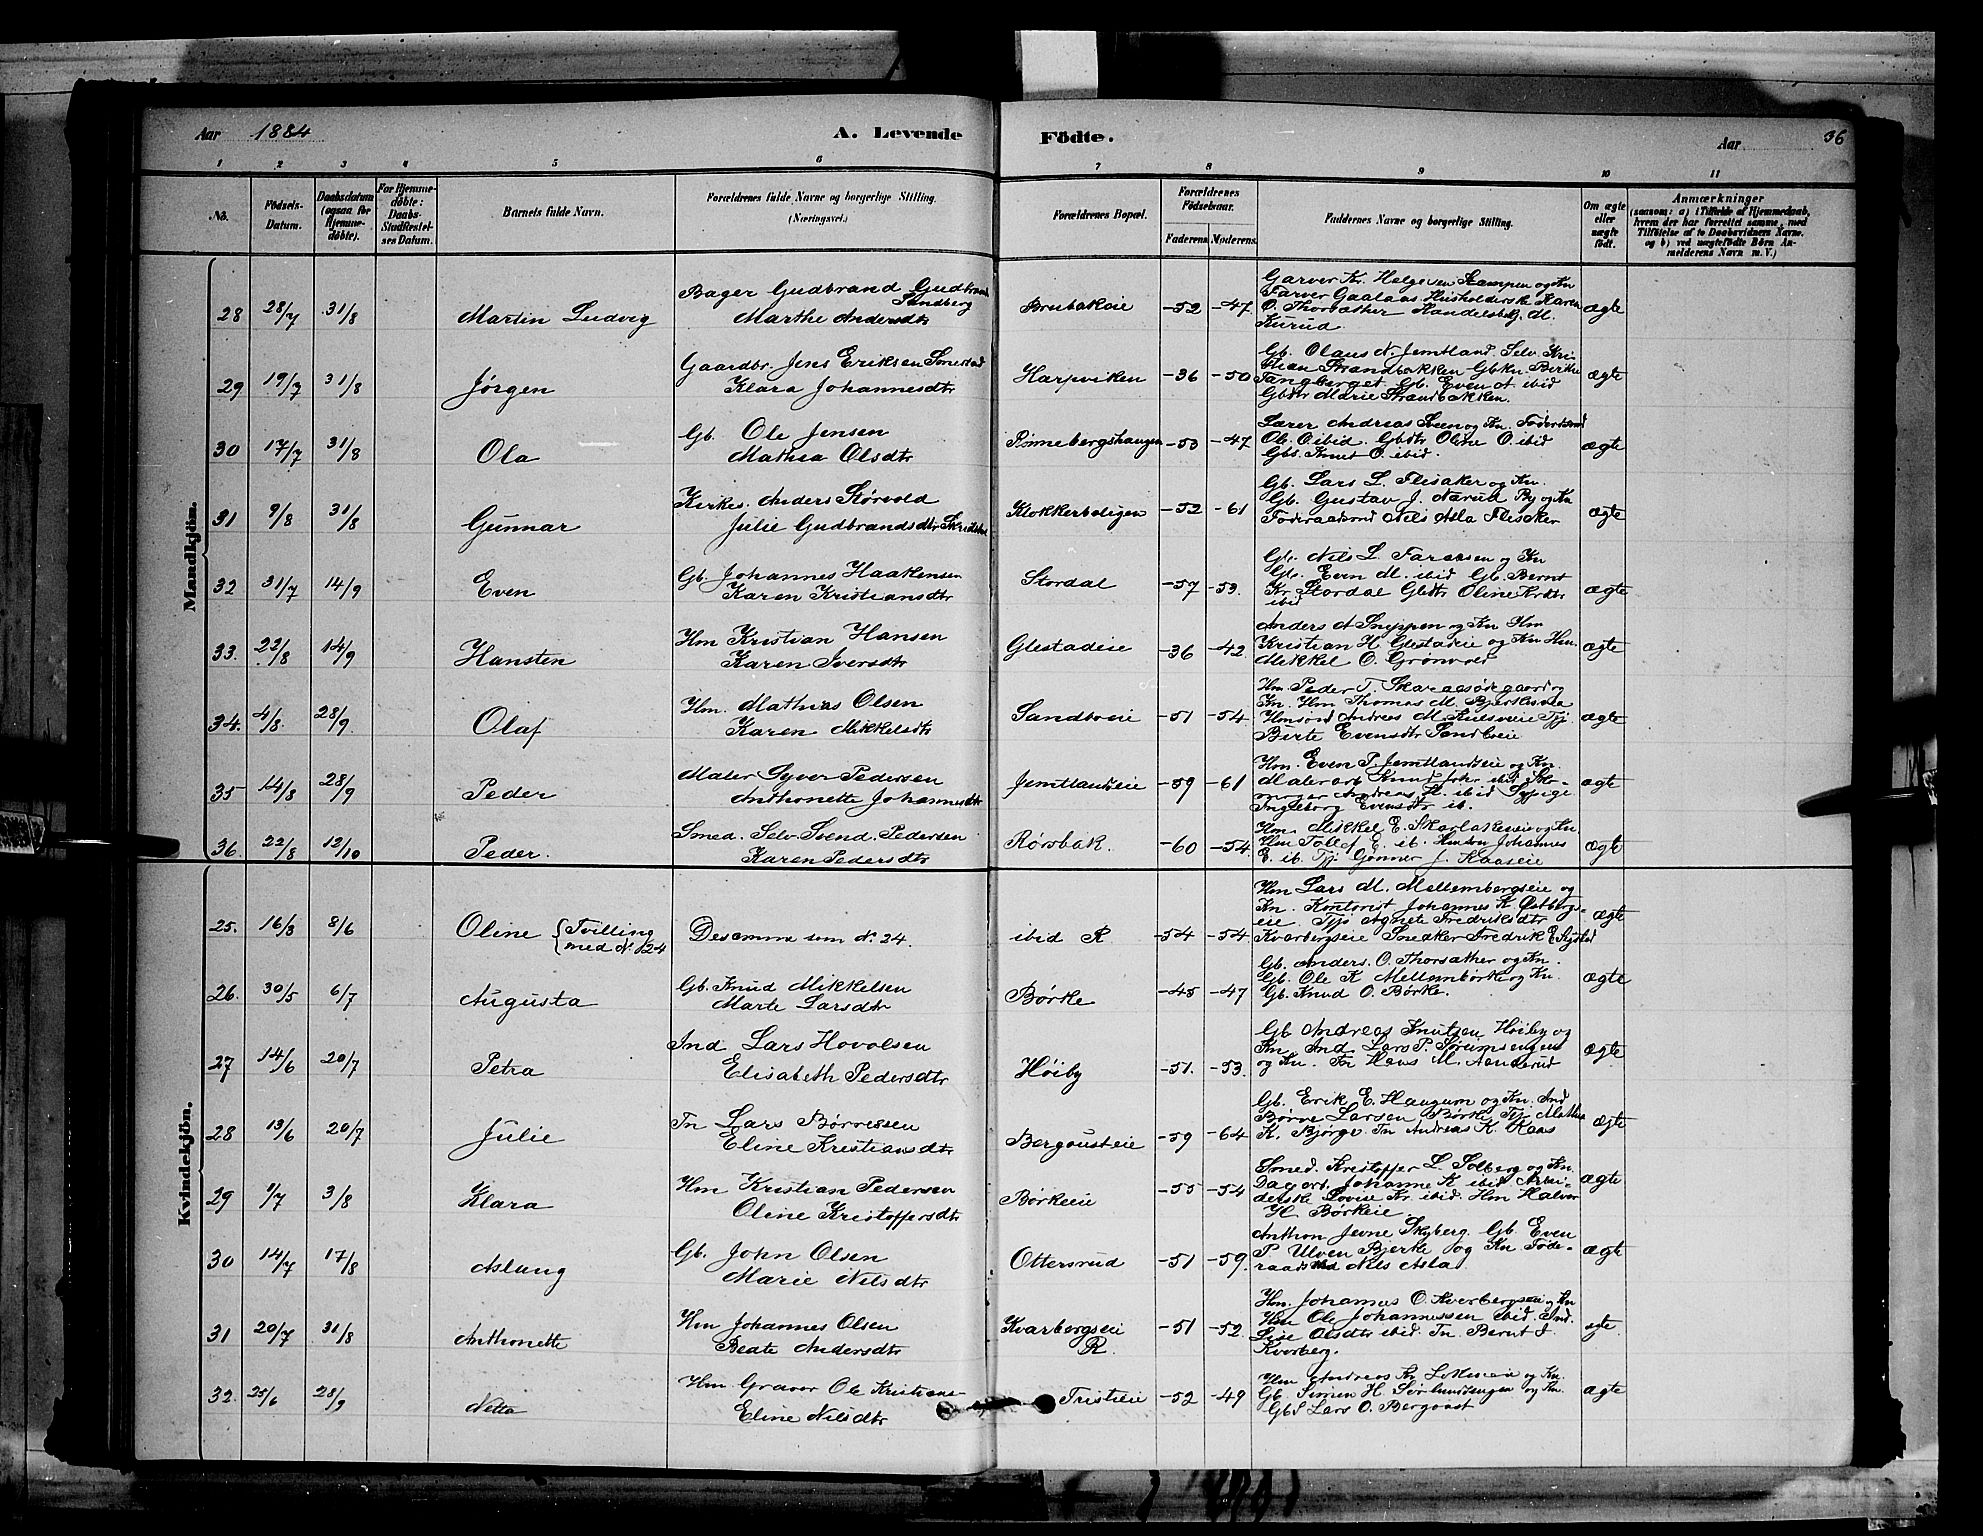 Aar 1884
A. Levende
Födte.
Aar
36
1 2 3 4 5 6 7 8 9 10 11
No.
Födsels-Datum.
Daabsdatum (ogsaa for Hjemmedöbte).
For Hjemmedöbte: Daabs-Stadfæstelses Datum.
Barnets fulde Navn.
Forældrenes fulde Navne og borgerlige Stilling. (Næringsvei.)
Forældrenes Bopæl.
Forældrenes Födselsaar.
Faderens. Moderens.
Faddernes Navne og borgerlige Stilling.
Om ægte eller uægte født.
Anmærkninger
(saasom: a) i Tilfælde af Hjemmedaab, hvem der har forrettet samme, med Tilföielse af to Daabsvidners Navne, og b) ved uægtefödte Börn Anmelderens Navn m. V.)
Mandkjön.
28 28/7 31/8 Martin Ludvig
Bager Gudbrand Gudbrands
Sandberg
Marthe Andersdtr
Brubakeie -52 -47
Garver Kr. Helgesen Stampen og Kn
Farver Gaalaas Husholderske Karen
O. Thorsæther Handelsbetj. M.
Kurud
ægte
29 19/7 31/8 Jørgen
Gaardbr. Jens Eriksen Smestad
Klara Johannesdtr
Harpviken -36 -50
Gb. Olaus N. Jemtland. Selv. Kri-
stian Strandbakken Gbkn Birthe
Tangberget Gb. Even A. ibid
Gbdtr Marie Strandbakken.
ægte
30 17/7 31/8 Ola
Gb. Ole Jensen
Mathea Olsdtr
Rønnebergshaugen -53 -47
Lærer Andreas Sveen og Kn. Föderaadsmd
Ole O. ibid. Gbdtr Oline O. ibid
Gbs. Knut O. ibid.
ægte
31 9/8 31/8 Gunnar
Kirkes. Anders Størvold
Julie Gudbrandsdtr
Klokkerboligen -52 -61
Gb. Lars L. Flisaker og Kn.
Gb. Gustav J. Narud By og Kn
Föderaadsmd Nils Asla Flisaker
ægte
32 31/7 14/9 Even
Gb. Johannes Haakensen
Karen Kristiansdtr
Stordal -57 -53.
Gb. Nils L. Faraasen og Kn
Gb. Even M. ibid Gb. Bernt
Kr. Stordal Gbdtr Oline Krdtr
ibid
ægte
33. 22/8 14/9 Hansten
Hm Kristian Hansen
Karen Iversdtr
Glestadeie -36 -42
Anders A Sneppen og Kn Hm
Kristian H Glestadeie og Kn Hm.
Mikkel O. Grønvold
ægte
34. 4/8 28/9 Olaf
Hm. Mathias Olsen
Karen Mikkelsdtr
Sandboeie -51 -54
Hm. Peder T. Skaraasødegaard og
Kn. Hm Thomas M.
Hmsön Andreas M. Tpj
Birte Evensdtr Sandboeie
ægte
35 14/8 28/9 Peder
Maler Syver Pedersen
Anthonette Johannesdtr
Jemtlandseie -59 -61
Hm. Even P. Jemtlandseie og Kn.
Malerarb Knut Johr ibid Sko-
mager Andreas H. ibid Sypige
Ingeborg Evensdtr ib.
ægte
36. 22/8 12/10 Peder.
Smed. Selv. Svend. Pedersen
Karen Pedersdtr
Rørsbak. -60 -54
Hm. Mikkel E. Skarlakeneie og Kn.
Hm Tollef E. ib. Hmsön Johannes
E. ib. Tpj. Gønner J. Kaaseie
ægte
Kvindekjön.
25. 16/3 8/6 Oline {Tvilling
med N. 24
Desamme som N. 24.
ibid R -54 -54
Hm Lars M. Mellembergseie og
Kn. Kontorist Johannes K. Østbergs-
eie Tpj Agnete Fredriksdtr
Kvarbergseie Snedker Fredrik E.
ægte
26. 30/5 6/7 Augusta
Gb. Knud Mikkelsen
Marte Larsdtr
Børke -45 -47
Gb. Anders. O. Thorsæther og Kn.
Gb. Ole K Mellembørke og Kn.
Gb. Knud O. Børke.
ægte
27 14/6 20/7 Petra
Ind Lars Hovolsen
Elisabeth Pedersdtr
Høiby -51. -53.
Gb Andreas Knutsen Høiby og
Kn Ind Lars P. Sørumsengen
og Kn. Tn Hans M. Aanderud
ægte
28 13/6 20/7 Julie
Tn Lars Børresen
Eline Kristiansdtr
Bergousteie -59 -64
Gb. Erik E. Haugum og Kn. Ind
Børre Larsen Børke Tpj Mathea
K. Bjørge Tn Andreas K. Kaas
ægte
29 1/7 3/8 Klara
Hm Kristian Pedersen
Oline Kristoffersdtr
Børkeeie -55 -54
Smed. Kristoffer L. Solberg og Kn.
Dagarb. Johanne K ibid Arbei-
derske Lovise Kr. ibid. Hm Halvor
H. Børkeie
ægte
30 14/7 17/8 Aslaug
Gb. John Olsen
Marie Nilsdtr
Ottersrud -51 -59
Anthon Jevne Skyberg. Gb. Even
P. Ulven Bjerke og Kn Føde-
raadsmd Nils Asla
ægte
31 20/7 31/8 Anthonette
Hm Johannes Olsen
Beate Andersdtr
Kvarbergseie
R. -51 -52
Hm. Johannes O. Kverbergseie og Kn
Hm Ole Johannessen ibid. Ind.
Lise Olsdtr ibid. Tn. Bernt J.
Kverberg.
ægte
32. 25/6 28/9 Netta
Hm Graver Ole Kristians-
Eline Nilsdtr
Tristieie -52 -49
Hm Andreas Kr og Kn.
Gb. Simen H. Sørlundsengen og Kn.
GbS Lars O. Bergoust
ægte